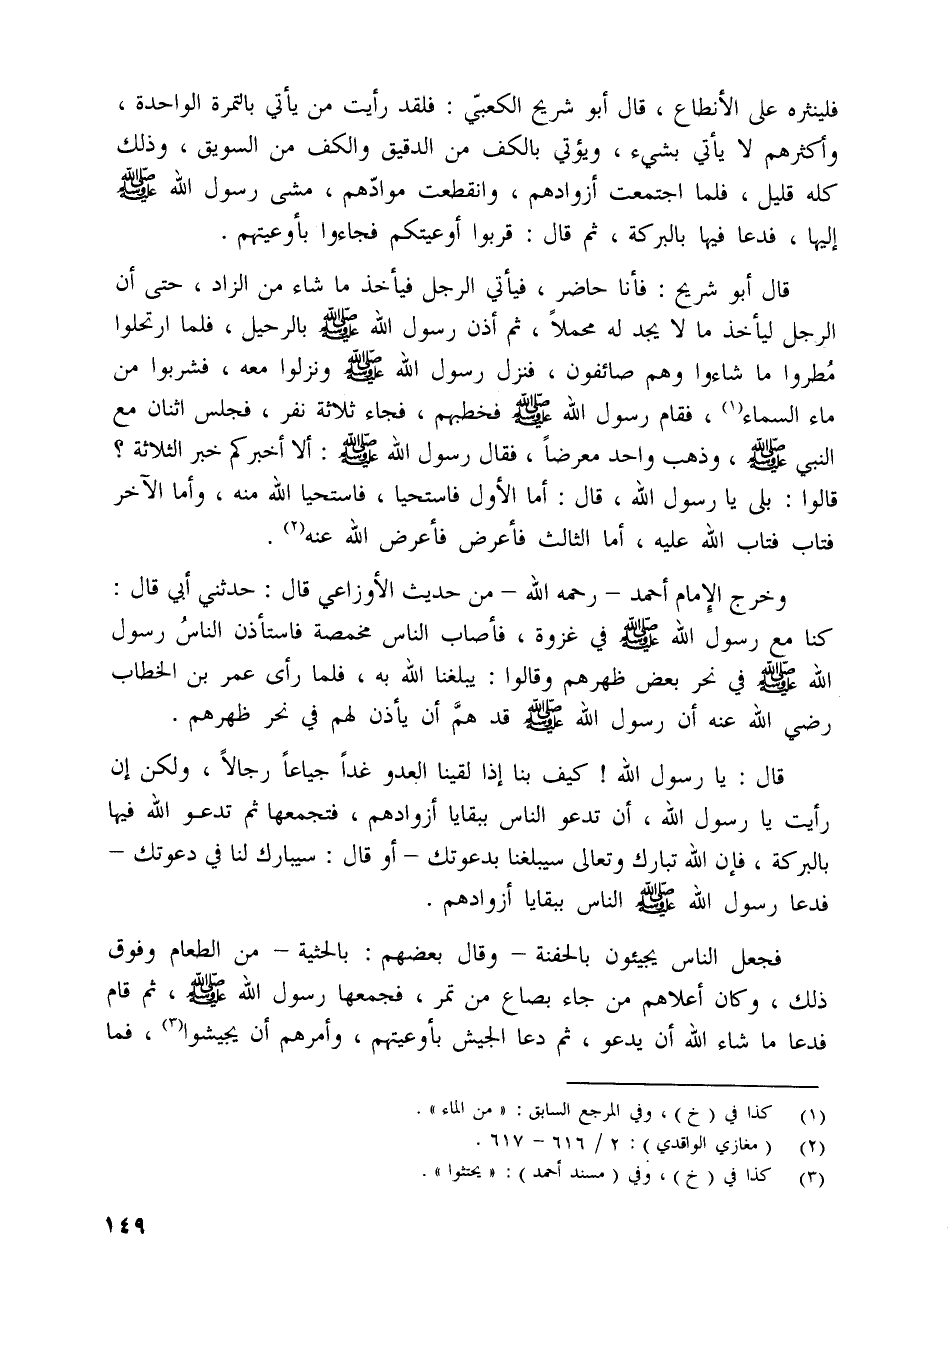 فلينثره على الأنطاع ، قال أبو شريح الكعبيّ : فلقد رأيت من يأتي بالتمرة الواحدة ،
وأكثرهم لا يأتي بشيء ، ويؤتي بالكف من الدقيق والكف من السويق ، وذلك
كله قليل ، فلما اجتمعت أزوادهم ، وانقطعت موادّهم ، مشى رسول الله ﷺ
إليها ، فدعا فيها بالبركة ، ثم قال : قربوا أوعيتكم فجاءوا بأوعيتهم .
قال أبو شريح : فأنا حاضر ، فيأتي الرجل فيأخذ ما شاء من الزاد ، حتى أن
الرجل ليأخذ ما لا يجد له محملاً ، ثم أذن رسول الله ﷺ بالرحيل ، فلما ارتحلوا
مُطروا ما شاءوا وهم صائفون ، فنزل رسول الله ﷺ ونزلوا معه ، فشربوا من
ماء السماء(١) ، فقام رسول الله ﷺ فخطبهم ، فجاء ثلاثة نفر ، فجلس اثنان مع
النبي ﷺ ، وذهب واحد معرضاً ، فقال رسول الله ﷺ : ألا أخبركم خبر الثلاثة ؟
قالوا : بلى يا رسول الله ، قال : أما الأول فاستحيا ، فاستحيا الله منه ، وأما الآخر
فتاب فتاب الله عليه ، أما الثالث فأعرض فأعرض الله عنه(٢) .
وخرج الإمام أحمد – رحمه الله – من حديث الأوزاعي قال : حدثني أبي قال :
كنا مع رسول الله ﷺ في غزوة ، فأصاب الناس مخمصة فاستأذن الناسُ رسول
الله ﷺ في نحر بعض ظهرهم وقالوا : يبلغنا الله به ، فلما رأى عمر بن الخطاب
رضي الله عنه أن رسول الله ﷺ قد همَّ أن يأذن لهم في نحر ظهرهم .
قال : يا رسول الله ! كيف بنا إذا لقينا العدو غداً جياعاً رجالاً ، ولكن إن
رأيت يا رسول الله ، أن تدعو الناس ببقايا أزوادهم ، فتجمعها ثم تدعـو الله فيها
بالبركة ، فإن الله تبارك وتعالى سيبلغنا بدعوتك – أو قال : سيبارك لنا في دعوتك –
فدعا رسول الله ﷺ الناس ببقايا أزوادهم .
فجعل الناس يجيئون بالحفنة – وقال بعضهم : بالحثية – من الطعام وفوق
ذلك ، وكان أعلاهم من جاء بصاع من تمر ، فجمعها رسول الله ﷺ ، ثم قام
فدعا ما شاء الله أن يدعو ، ثم دعا الجيش بأوعيتهم ، وأمرهم أن يجيشوا(٣) ، فما
(١) كذا في ( خ ) ، وفي المرجع السابق : « من الماء » .
(٢) ( مغازي الواقدي ) : ٢ / ٦١٦ – ٦١٧ .
(٣) كذا في ( خ ) ، وفي ( مسند أحمد ) : « يحتثوا » .
١٤٩